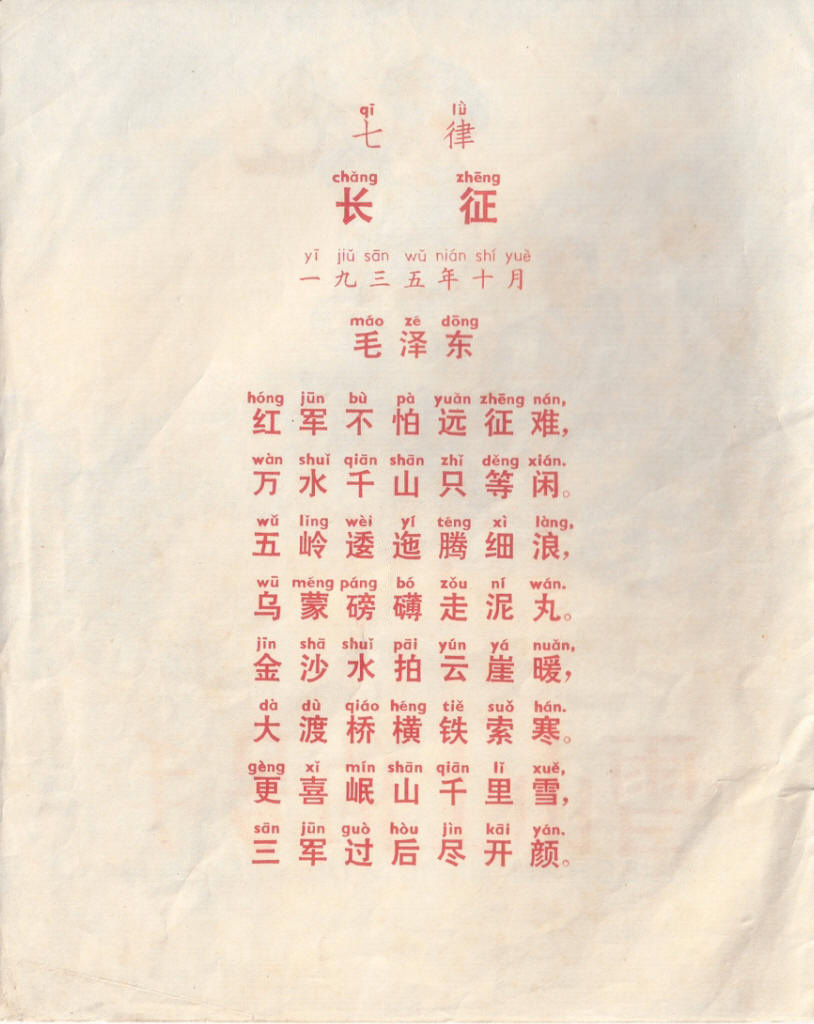 qī lǜ
七 律
chǎng zhēng
长 征
yī jiǔ sān wǔ nián shí yuè
一九三五年十月
máo zé dōng
毛泽东
hóng jūn bù pà yuǎn zhēng nán,
红军不怕远征难，
wàn shuǐ qiān shān zhǐ děng xián.
万水千山只等闲。
wǔ lǐng wèi yí téng xì làng,
五岭逶迤腾细浪，
wū měng páng bó zǒu ní wán.
乌蒙磅礴走泥丸。
jīn shā shuǐ pāi yún yá nuǎn,
金沙水拍云崖暖，
dà dù qiáo héng tiě suǒ hán.
大渡桥横铁索寒。
gèng xǐ mín shān qiān lǐ xuě,
更喜岷山千里雪，
sān jūn guò hòu jìn kāi yán.
三军过后尽开颜。